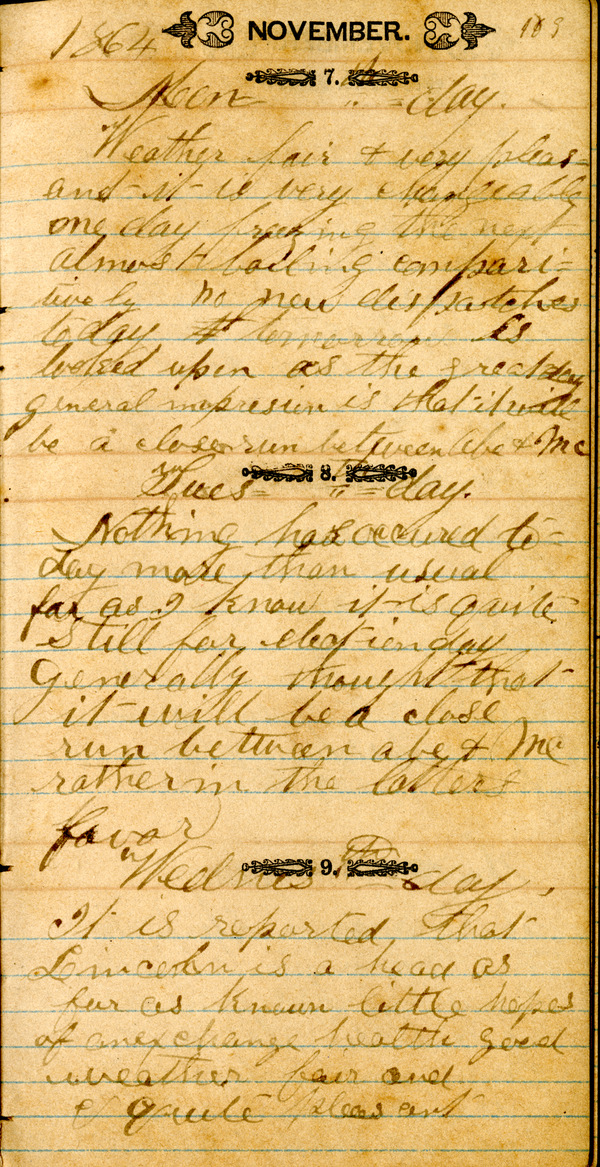 1864 NOVEMBER. 189
7.
Mon " = day.
Weather fair & very pleas=
ant it is very changeable
one day freezing the next
almost boiling compari=
tively no new dispatches
today tomorrow is
looked upon as the great day
general impresion is that it will
be a close run between Abe & Mc
8.
Tues = " = day.
Nothing has occured to=
day more than usual
far as I know it is quite
still for election day
Generally thought that
it will be a close
run between abe & Mc
rather in the latters
favor
9.
Wednes day.
It is reported that
Lincoln is a head as
fur as known little hopes
of an exchange health good
weather fair and
& quite pleasant